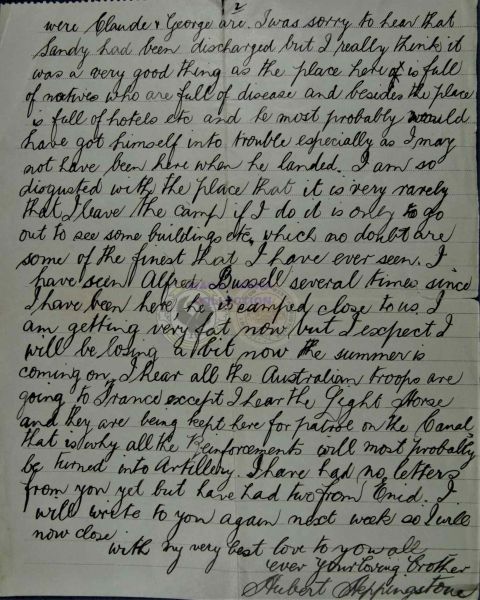 2
were Claude & George are. I was sorry to hear that
Sandy had been discharged but I really think it
was a very good thing as the place here is full
of natives who are full of disease and besides the place
is full of hotels etc and he most probably would
have got himself into trouble especially as I may
not have been here when he landed. I am so
disgusted with the place that it is very rarely
that I leave the camp if I do it is only to go
out to see some buildings etc, which no doubt are
some of the finest that I have ever seen. I
have seen Alfred Bussell several times since
I have been here he is camped close to us. I
am getting very fat now but I expect I
will be losing a bit now the summer is
coming on, I hear all the Australian troops are
going to France except I hear the Light Horse
and they are being kept here for patrol on the Canal
that is why all the Reinforcements will most probably
be turned into Artillery. I have had no letters
from you yet but have had two from Enid. I
will write to you again next week so I will
now close.
with my very best love to you all
ever your loving Brother
Hubert Heppingstone